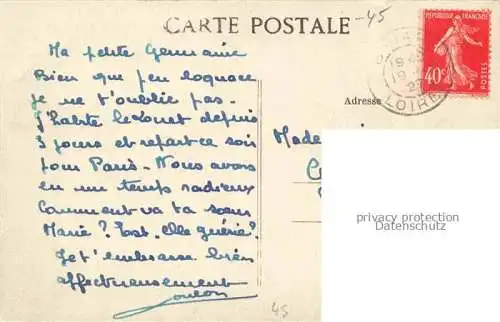 CARTE POSTALE
-45
Ma petite Germaine
Bien que peu loquace
je ne t'oublie pas.
J'habite le Lonat depuis
3 jours et repart ce soir
pour Paris. Nous avons
eu un temps radieux
Comment va ta soeur
Marie ? Est-elle guérie ?
Je t'embrasse bien
affectueusement
REPUBLIQUE FRANÇAISE
40c
POSTES
LOIRE
Adresse
Made
privacy protection
Datenschutz
45